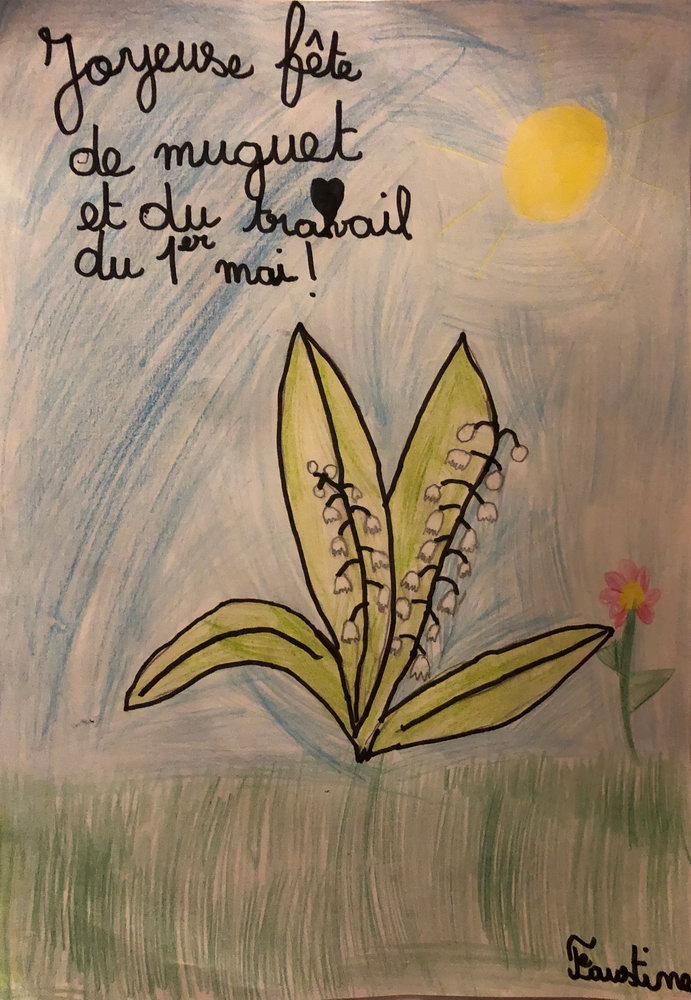 Joyeuse fête
de muguet
et du travail
du 1er mai !
Faustine